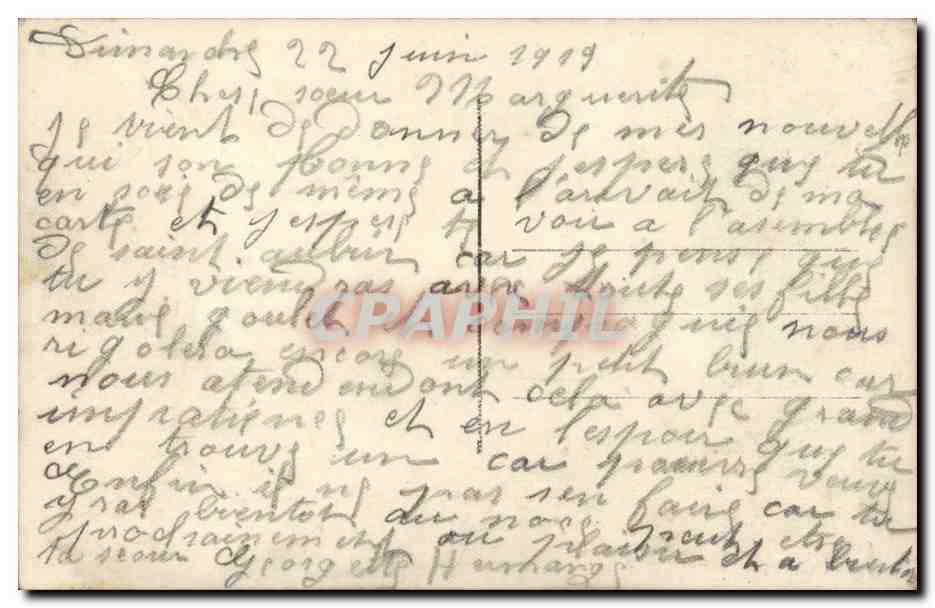 Dimanche 22 juin 1919
Cher soeur Marguerite
je vient de donner de mes nouvelle
qui son bonne et j'espere que tu
en soie de même a l'arivait de ma
carte et j'espere te voir a l'asemblee
de saint aubin car je pense que
tu y viendras avec toute ses fille
marie goulet et
rigolera encore un petit brun car
nous atendendont cela avec grand
impatience et en l'espoir que tu
en trouve un car pauvre veuve
Enfin il ne pas sen faire car tu
yras bientot au noce peut etre
prochainement au plaisir et a bientot
ta seour Georgette
CPAPHIL